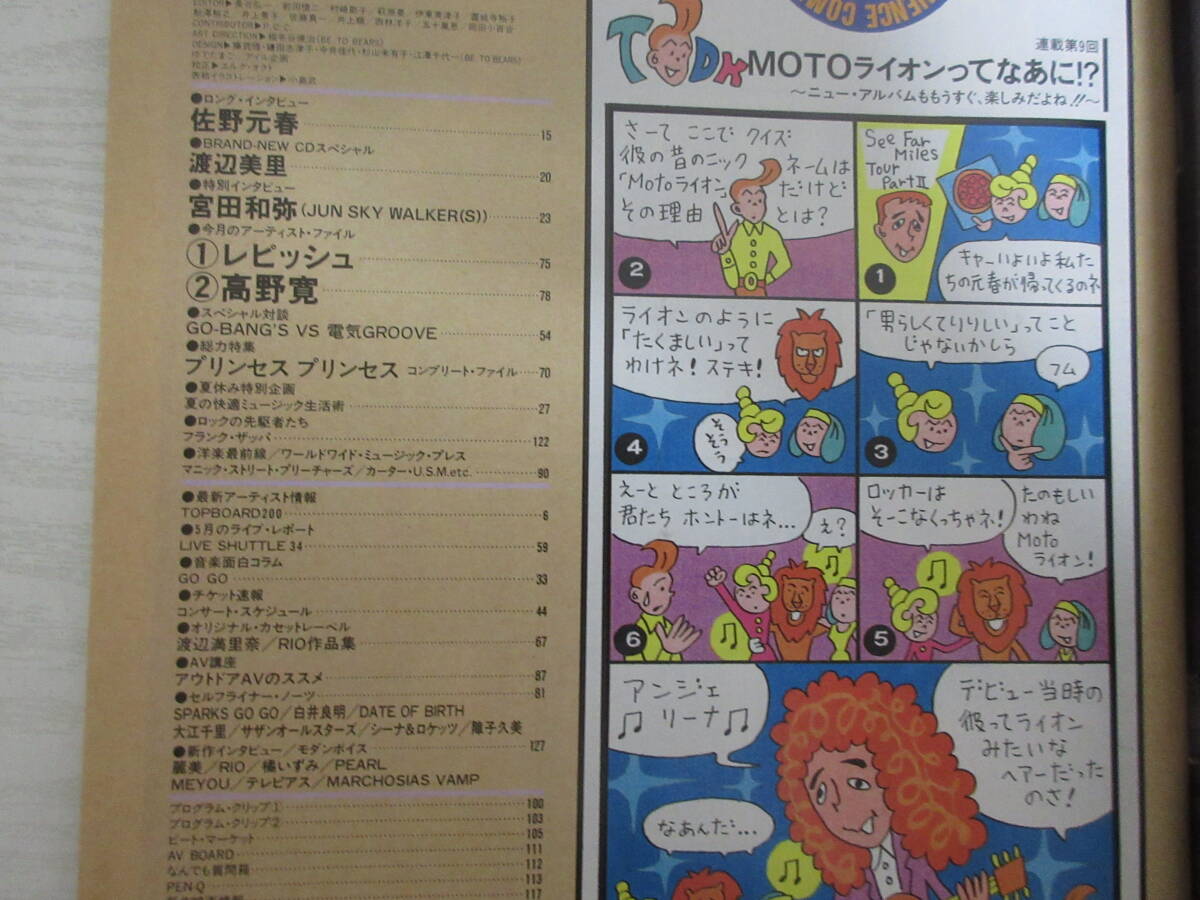 CONTRIBUTOR▶P.C.C.
表紙イラストレーション▶小島武
●ロング・インタビュー
佐野元春 15
●BRAND-NEW CDスペシャル
渡辺美里 20
●特別インタビュー
宮田和弥(JUN SKY WALKER(S)) 23
●今月のアーティスト・ファイル
①レピッシュ 75
②高野寛 78
●スペシャル対談
GO-BANG'S VS 電気GROOVE 54
●総力特集
プリンセス プリンセス コンプリート・ファイル 70
●夏休み特別企画
夏の快適ミュージック生活術 27
●ロックの先駆者たち
フランク・ザッパ 122
●洋楽最前線／ワールドワイド・ミュージック・プレス
マニック・ストリート・プリーチャーズ／カーター・U.S.M.etc. 90
●最新アーティスト情報
TOPBOARD200 6
●5月のライブ・レポート
LIVE SHUTTLE 34 59
●音楽面白コラム
GO GO 33
●チケット速報
コンサート・スケジュール 44
●オリジナル・カセットレーベル
渡辺満里奈／RIO作品集 67
●AV講座
アウトドアAVのススメ 87
●セルフライナー・ノーツ 81
SPARKS GO GO／白井良明／DATE OF BIRTH
大江千里／サザンオールスターズ／シーナ&ロケッツ／障子久美
●新作インタビュー／モダンボイス 127
麗美／RIO／橘いずみ／PEARL
MEYOU／テレピアス／MARCHOSIAS VAMP
プログラム・クリップ① 100
プログラム・クリップ② 103
ビート・マーケット 105
AV BOARD 111
なんでも質問箱 112
PEN-Q 113
117
連載第9回
MOTOライオンってなあに!?
〜ニュー・アルバムももうすぐ、楽しみだよね!!〜
See Far
Miles
Tour
Part II
キャーいよいよ私た
ちの元春が帰ってくるのネ
1
さーて ここで クイズ
彼の昔のニックネームは
「Motoライオン」だけど
その理由とは?
2
「男らしくてりりしい」ってこと
じゃないかしら
フム
3
ライオンのように
「たくましい」って
わけネ! ステキ!
そうそう
4
ロッカーは
そーこなくっちゃネ!
たのもしい
わね
Moto
ライオン!
5
えーと ところが
君たち ホントーはネ…
え?
6
デビュー当時の
彼ってライオン
みたいな
ヘアーだった
のさ!
アンジェ
♫ リーナ ♫
なあんだ…